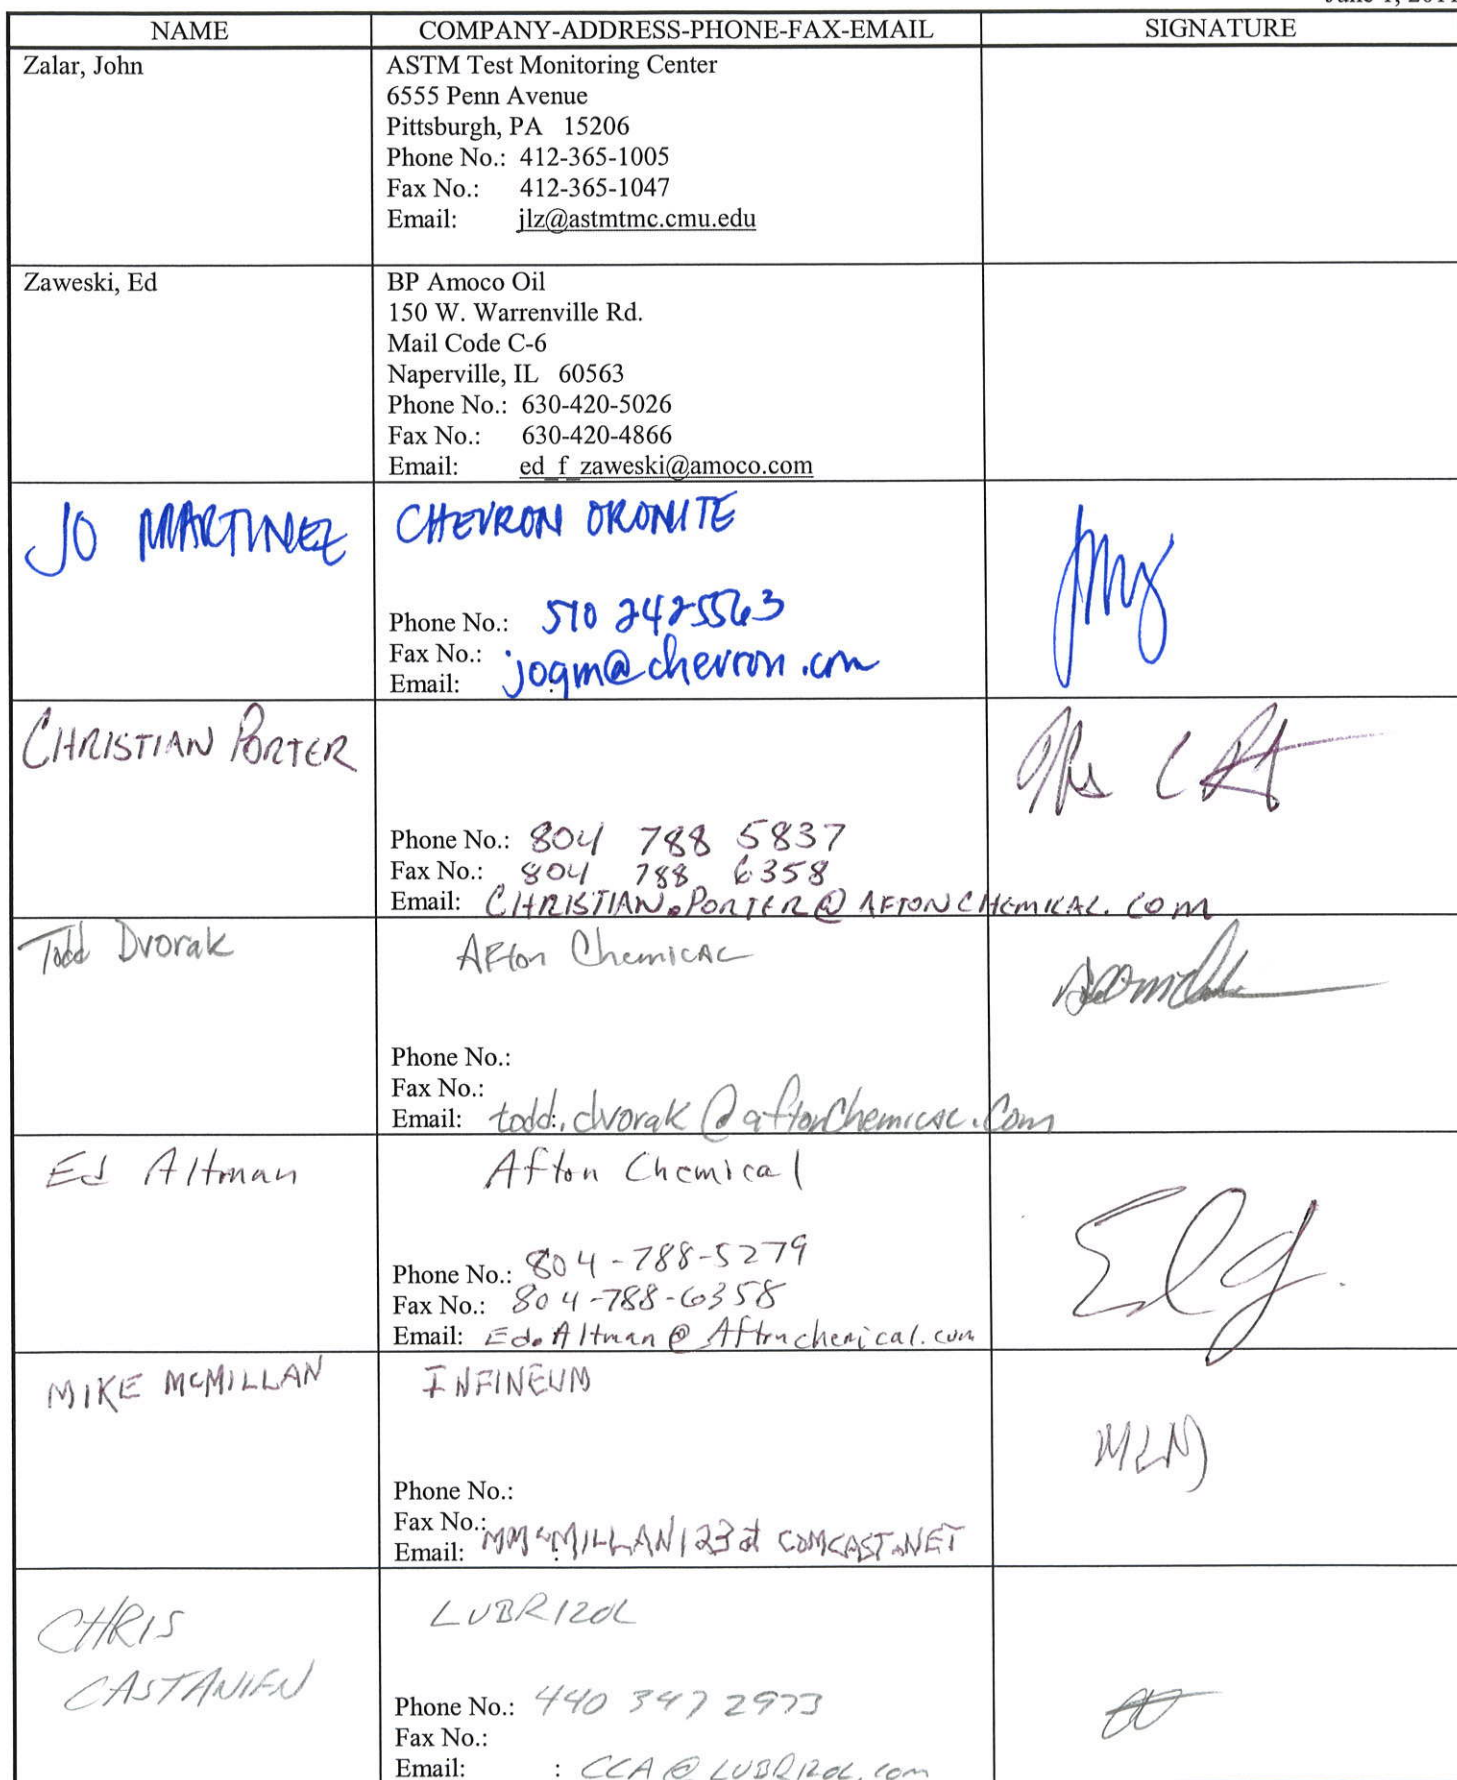 NAME COMPANY-ADDRESS-PHONE-FAX-EMAIL SIGNATURE
Zalar, John ASTM Test Monitoring Center
6555 Penn Avenue
Pittsburgh, PA 15206
Phone No.: 412-365-1005
Fax No.: 412-365-1047
Email: jlz@astmtmc.cmu.edu
Zaweski, Ed BP Amoco Oil
150 W. Warrenville Rd.
Mail Code C-6
Naperville, IL 60563
Phone No.: 630-420-5026
Fax No.: 630-420-4866
Email: ed_f_zaweski@amoco.com
JO MARTINEZ CHEVRON ORONITE
Phone No.: 510 2425563
Fax No.:
Email: jogm@chevron.com
CHRISTIAN PORTER
Phone No.: 804 788 5837
Fax No.: 804 788 6358
Email: CHRISTIAN.PORTER@AFTONCHEMICAL.COM
Todd Dvorak AFton ChemicAL
Phone No.:
Fax No.:
Email: todd.dvorak@aftonChemicAL.Com
Ed Altman Afton Chemical
Phone No.: 804-788-5279
Fax No.: 804-788-6358
Email: Ed.Altman@Aftonchemical.com
MIKE McMILLAN INFINEUM
Phone No.:
Fax No.:
Email: MMcMILLAN123 at COMCAST.NET
CHRIS LUBRIZOL
CASTANIEN
Phone No.: 440 347 2973
Fax No.:
Email: : CCA@LUBRIZOL.com